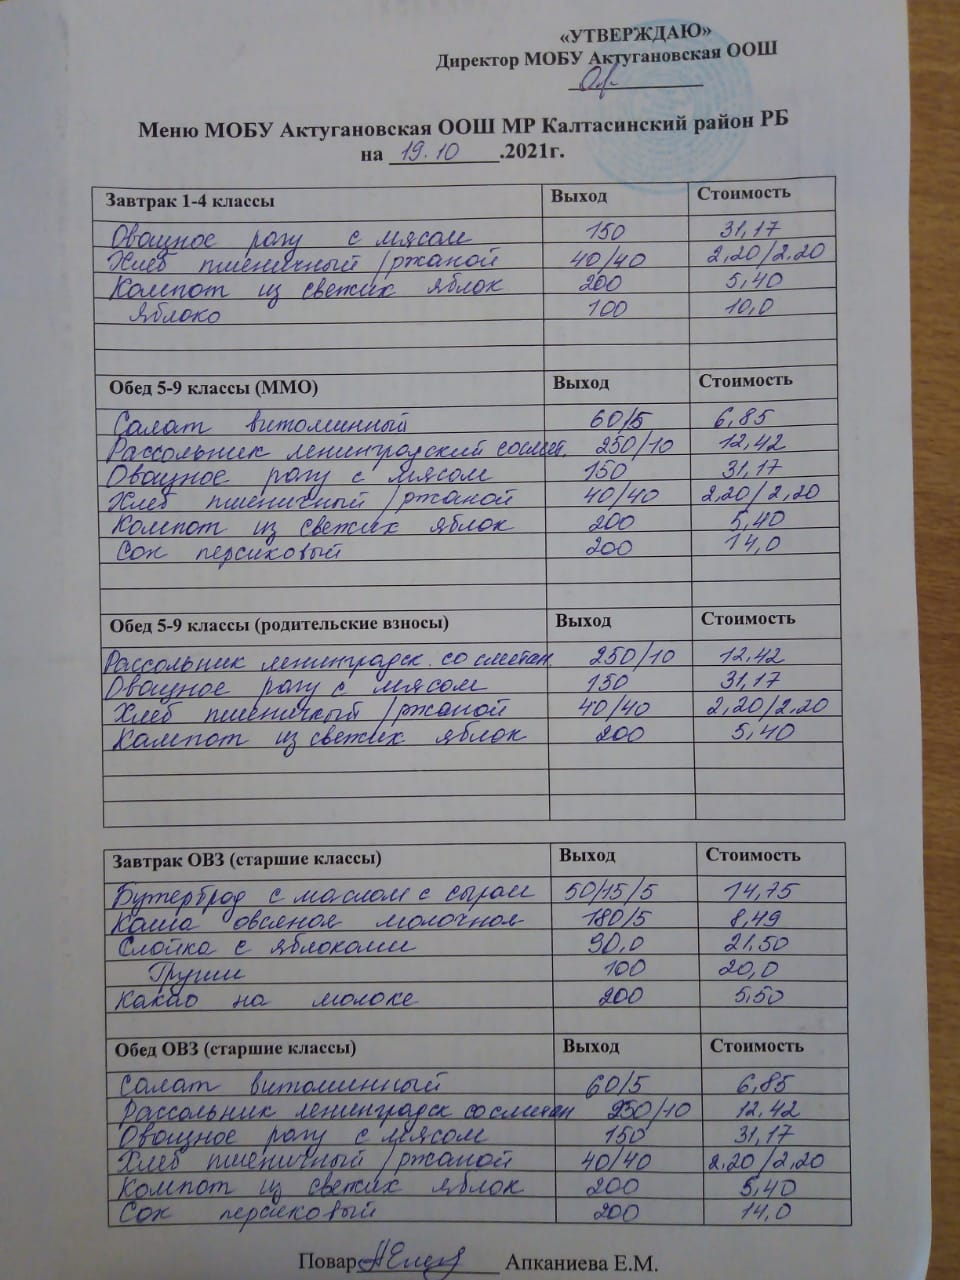 «УТВЕРЖДАЮ»
Директор МОБУ Актугановская ООШ
Меню МОБУ Актугановская ООШ МР Калтасинский район РБ
на 19.10.2021г.
Завтрак 1-4 классы Выход Стоимость
Овощное рагу с мясом 150 31,17
Хлеб пшеничный/ржаной 40/40 2,20/2.20
Компот из свежих яблок 200 5,40
Яблоко 100 10,0
Обед 5-9 классы (ММО) Выход Стоимость
Салат витаминный 60/5 6,85
Рассольник ленинградский со смет. 250/10 12,42
Овощное рагу с мясом 150 31,17
Хлеб пшеничный/ржаной 40/40 2,20/2,20
Компот из свежих яблок 200 5,40
Сок персиковый 200 14,0
Обед 5-9 классы (родительские взносы) Выход Стоимость
Рассольник ленинградск. со сметан 250/10 12,42
Овощное рагу с мясом 150 31,17
Хлеб пшеничный/ржаной 40/40 2,20/2.20
Компот из свежих яблок 200 5,40
Завтрак ОВЗ (старшие классы) Выход Стоимость
Бутерброд с маслом с сыром 50/15/5 14,75
Каша овсяная молочная 180/5 8,49
Слойка с яблоками 90,0 21,50
Груши 100 20,0
Какао на молоке 200 5,50
Обед ОВЗ (старшие классы) Выход Стоимость
Салат витаминный 60/5 6,85
Рассольник ленинградск со сметан 250/10 12,42
Овощное рагу с мясом 150 31,17
Хлеб пшеничный/ржаной 40/40 2.20/2,20
Компот из свежих яблок 200 5,40
Сок персиковый 200 14,0
Повар Апканиева Е.М.